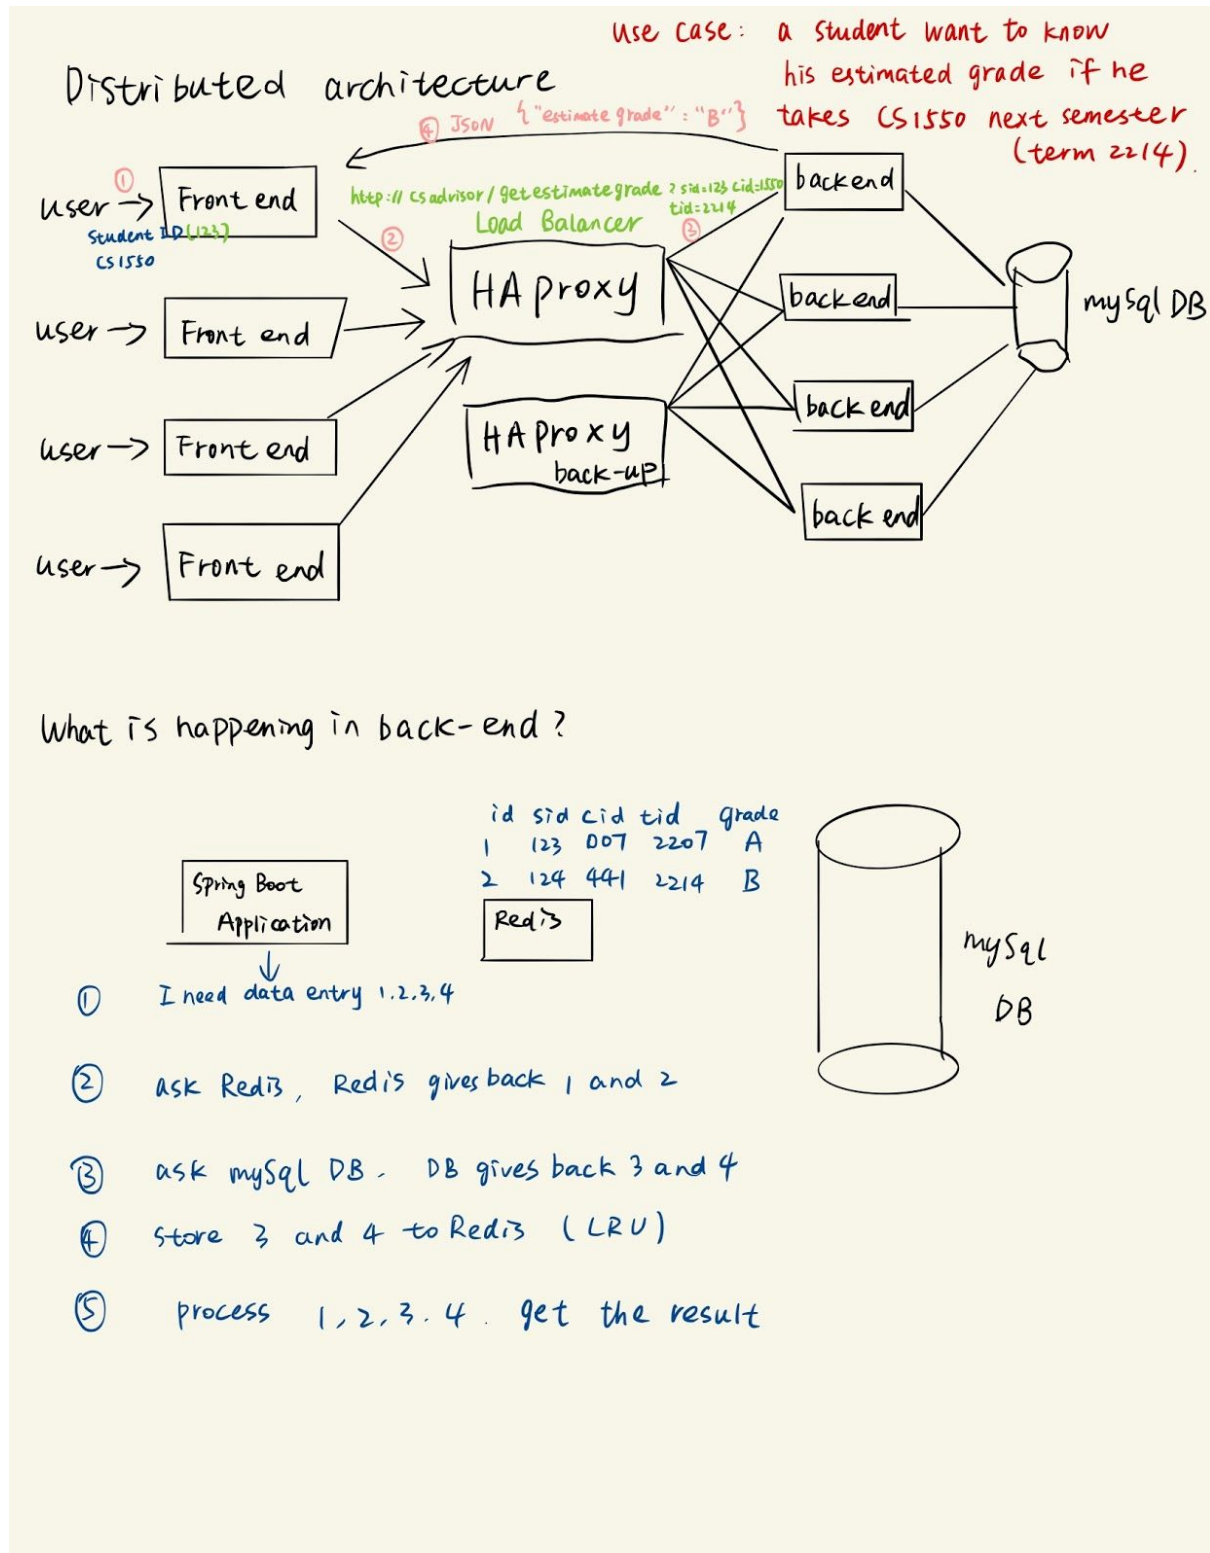 use case: a student want to know
his estimated grade if he
takes CS1550 next semester
(term 2214).
Distributed architecture
④ Json {"estimate grade": "B"}
user → ① Front end
Student ID (123)
CS1550
http://csadvisor/getestimategrade?sid=123 cid=1550
tid=2214
Load Balancer
②
③
HAproxy
backend
user → Front end
backend
mySql DB
user → Front end
HAProxy
back-up
back end
user → Front end
back end
What is happening in back-end?
id sid cid tid grade
1 123 007 2207 A
2 124 441 2214 B
Spring Boot
Application
Redis
mySql
DB
① I need data entry 1.2.3,4
② ask Redis, Redis gives back 1 and 2
③ ask mySql DB. DB gives back 3 and 4
④ store 3 and 4 to Redis (LRU)
⑤ process 1,2,3.4. get the result